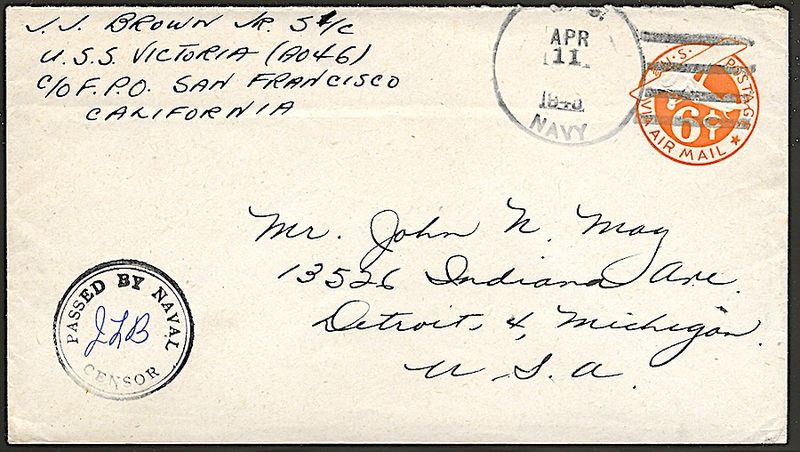 J. J. BROWN JR. S 1/C
U.S.S. VICTORIA (AO46)
C/O F.P.O. SAN FRANCISCO
CALIFORNIA
APR
11
NAVY
U.S. POSTAGE
6¢
VIA AIR MAIL
Mr. John N. May
13526 Indiana Ave.
Detroit, 4, Michigan.
U.S.A.
PASSED BY NAVAL
JLB
CENSOR